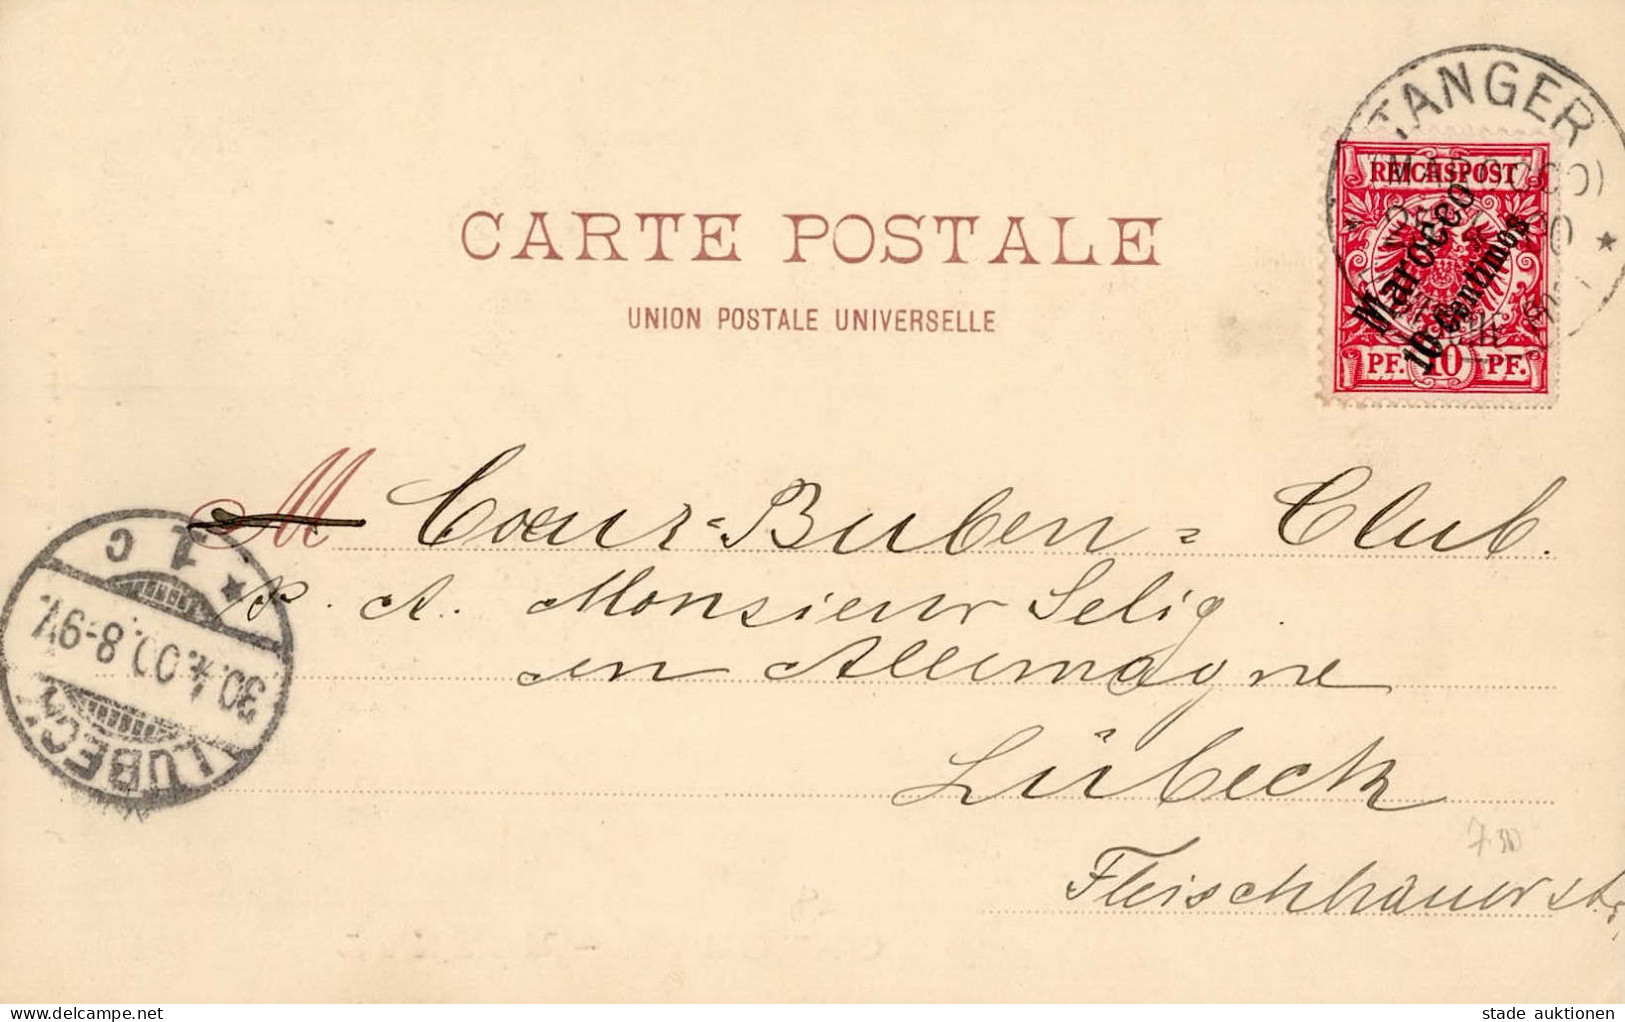 TANGER
(MAROCCO)
REICHSPOST
Marocco
10 Centimos
PF. 10 PF.
CARTE POSTALE
UNION POSTALE UNIVERSELLE
M Coeur-Buben-Club.
p. A. Monsieur Selig.
en Allemagne
Lübeck
Fleischhauerstr.
LÜBECK
30.4.00. 8-9V.
* 1 c
delcampe.net
stade auktionen